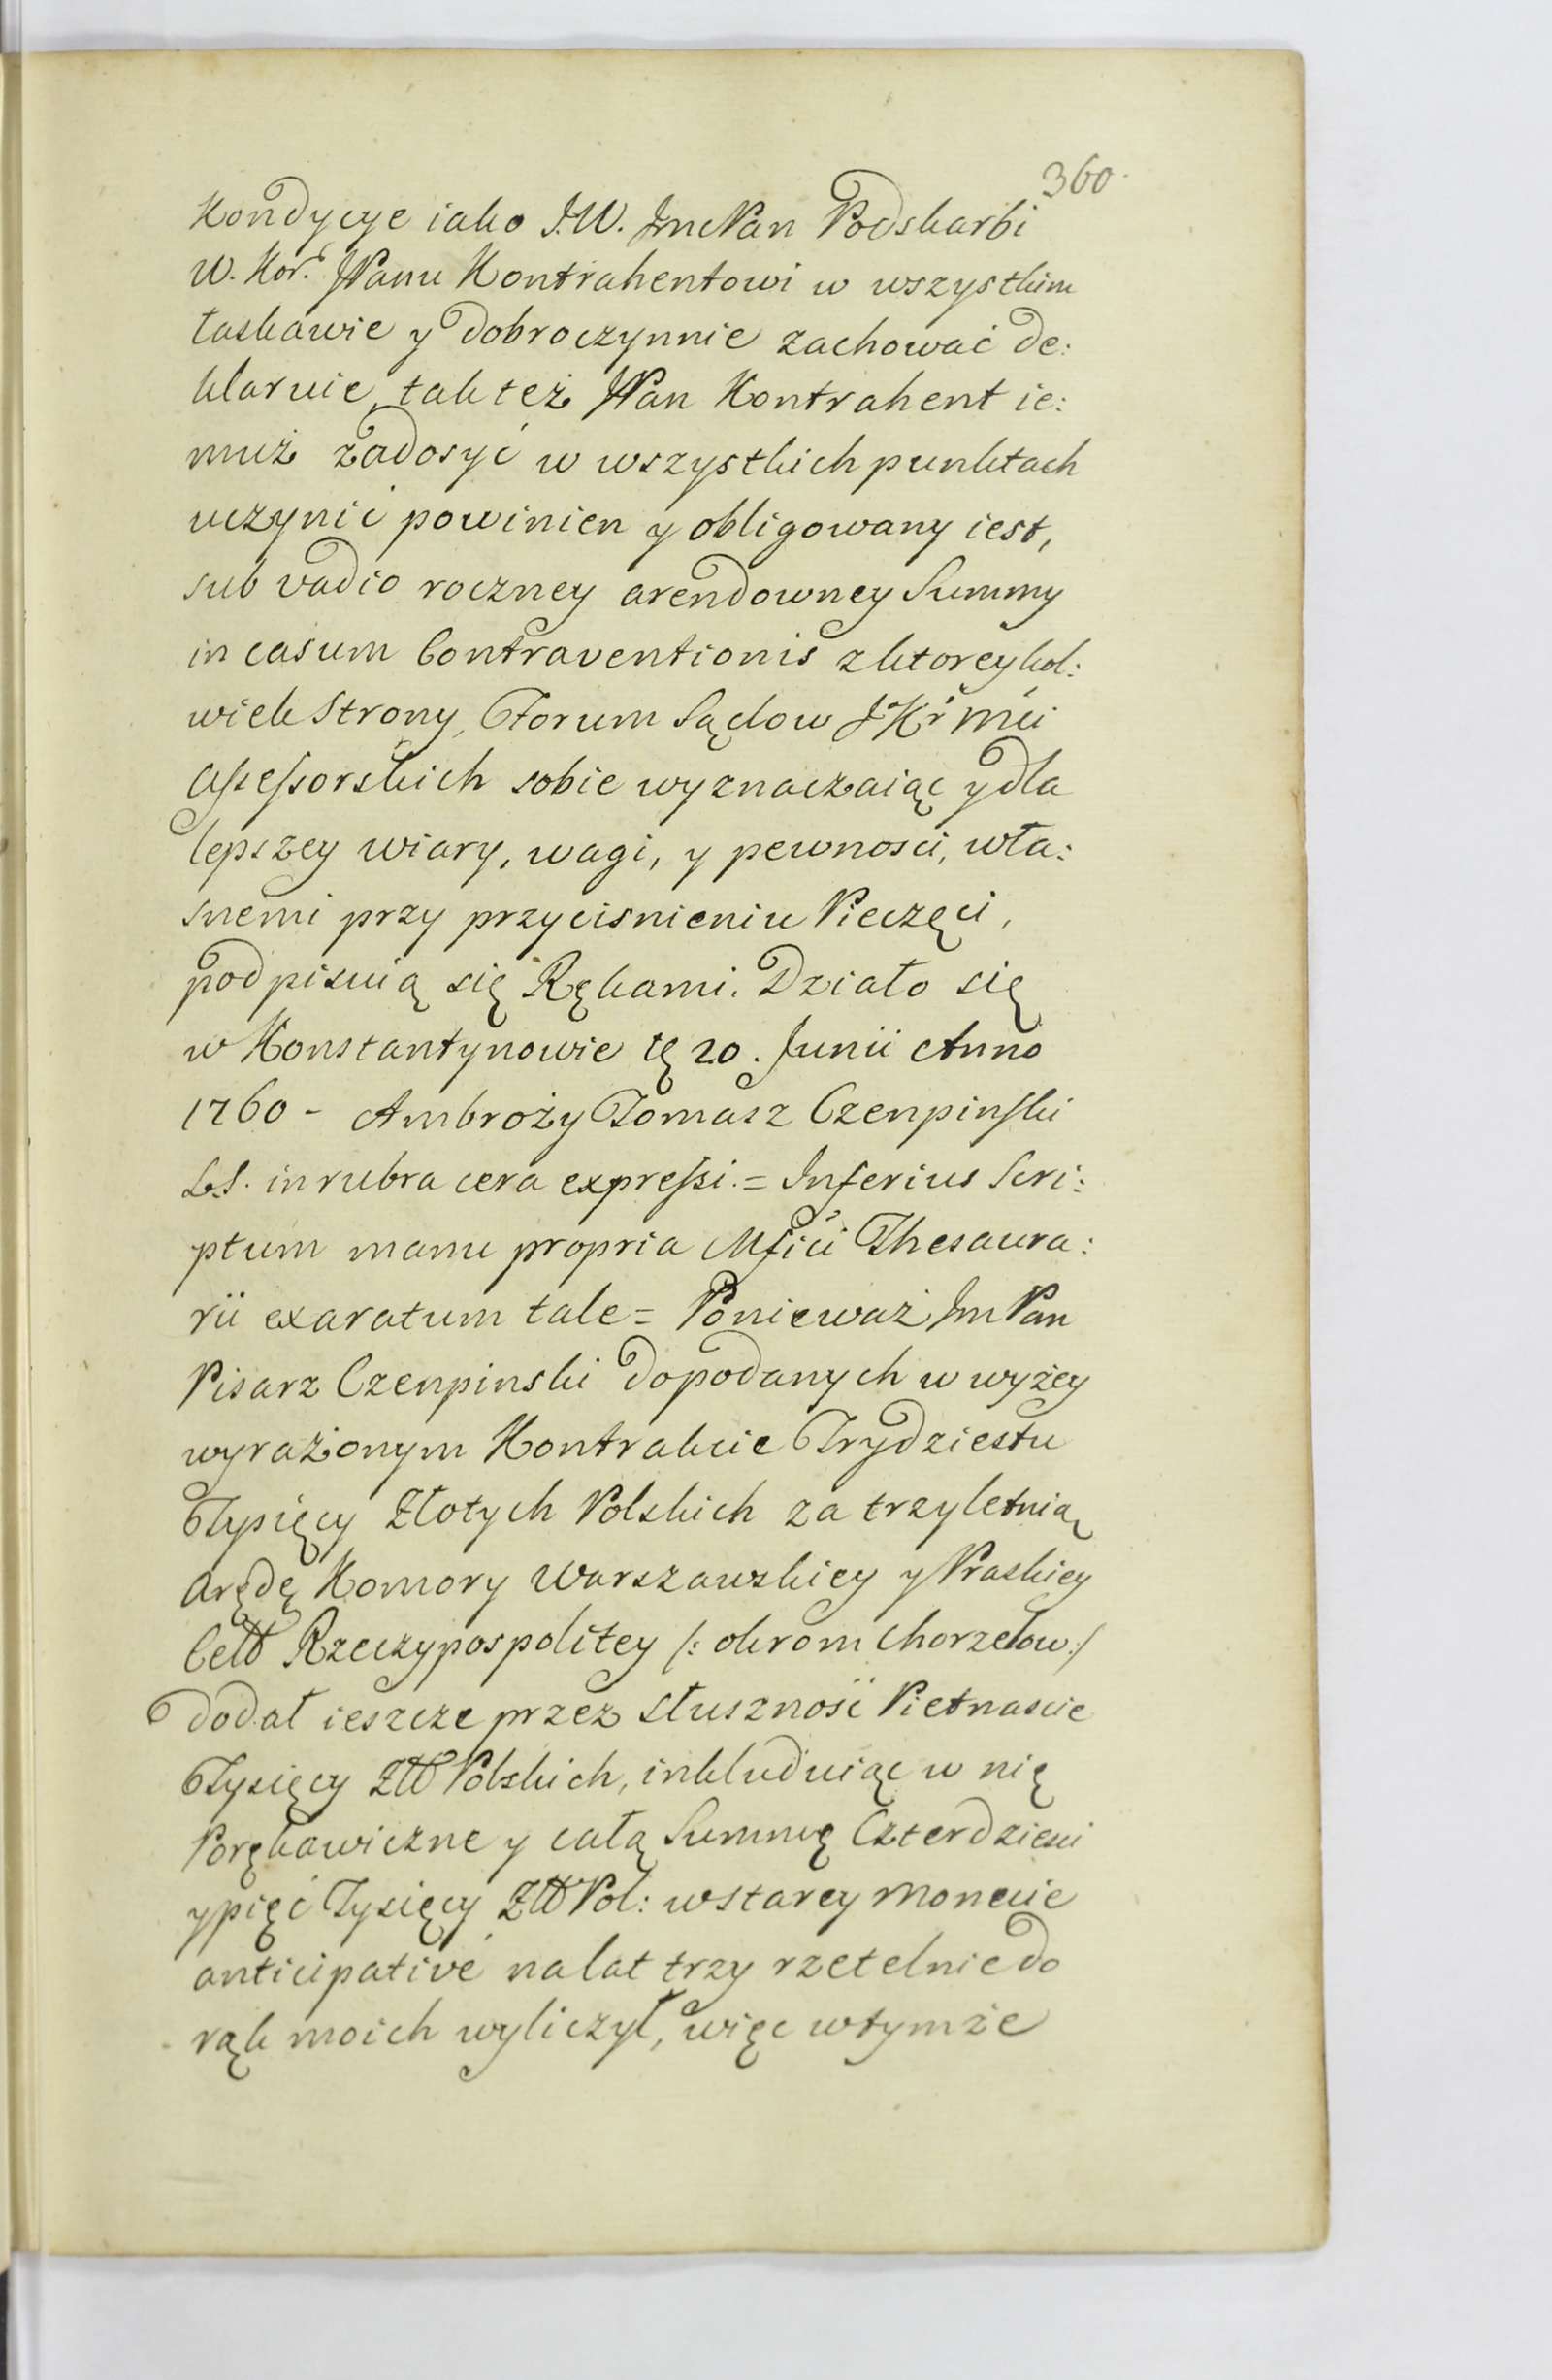 360.
Kondycye iako J.W. Jmc Pan Podskarbi
W. Kor. JPanu Kontrahentowi w wszystkim
łaskawie y dobroczynnie zachować de:
klaruie, tak też JPan Kontrahent ie:
muż zadosyć w wszystkich punktach
uczynić powinien y obligowany iest,
sub vadio roczney arendowney Summy
in casum Contraventionis z ktoreykol:
wiek Strony, Forum Sądow JKr Mci
Assessorskich sobie wyznaczaiąc y dla
lepszey wiary, wagi, y pewnosci, wła:
snemi przy przycisnieniu Pieczęci,
podpisuią się Rękami. Działo się
w Konstantynowie tę 20. Junii Anno
1760 - Ambroży Tomasz Czenpinski
L.S. in rubra cera expressi. = Inferius Scri:
ptum manu propria Mfici Thesaura:
rii exaratum tale = Ponieważ Jm Pan
Pisarz Czenpinski do podanych w wyżey
wyrażonym Kontrakcie Trydziestu
Tysięcy Złotych Polskich za trzyletnią
Arędę Komory Warszawskiey y Praskiey
Cełł Rzeczypospolitey /: okrom Chorzelow :/
dodał ieszcze przez słuszność Pietnascie
Tysięcy Złł Polskich, inkluduiąc w nię
Porękawiczne y całą Summę Czterdziesci
y pięć Tysięcy Złł Pol: w starey Monecie
anticipativé na lat trzy rzetelnie do
rąk moich wyliczył, więc w tymże